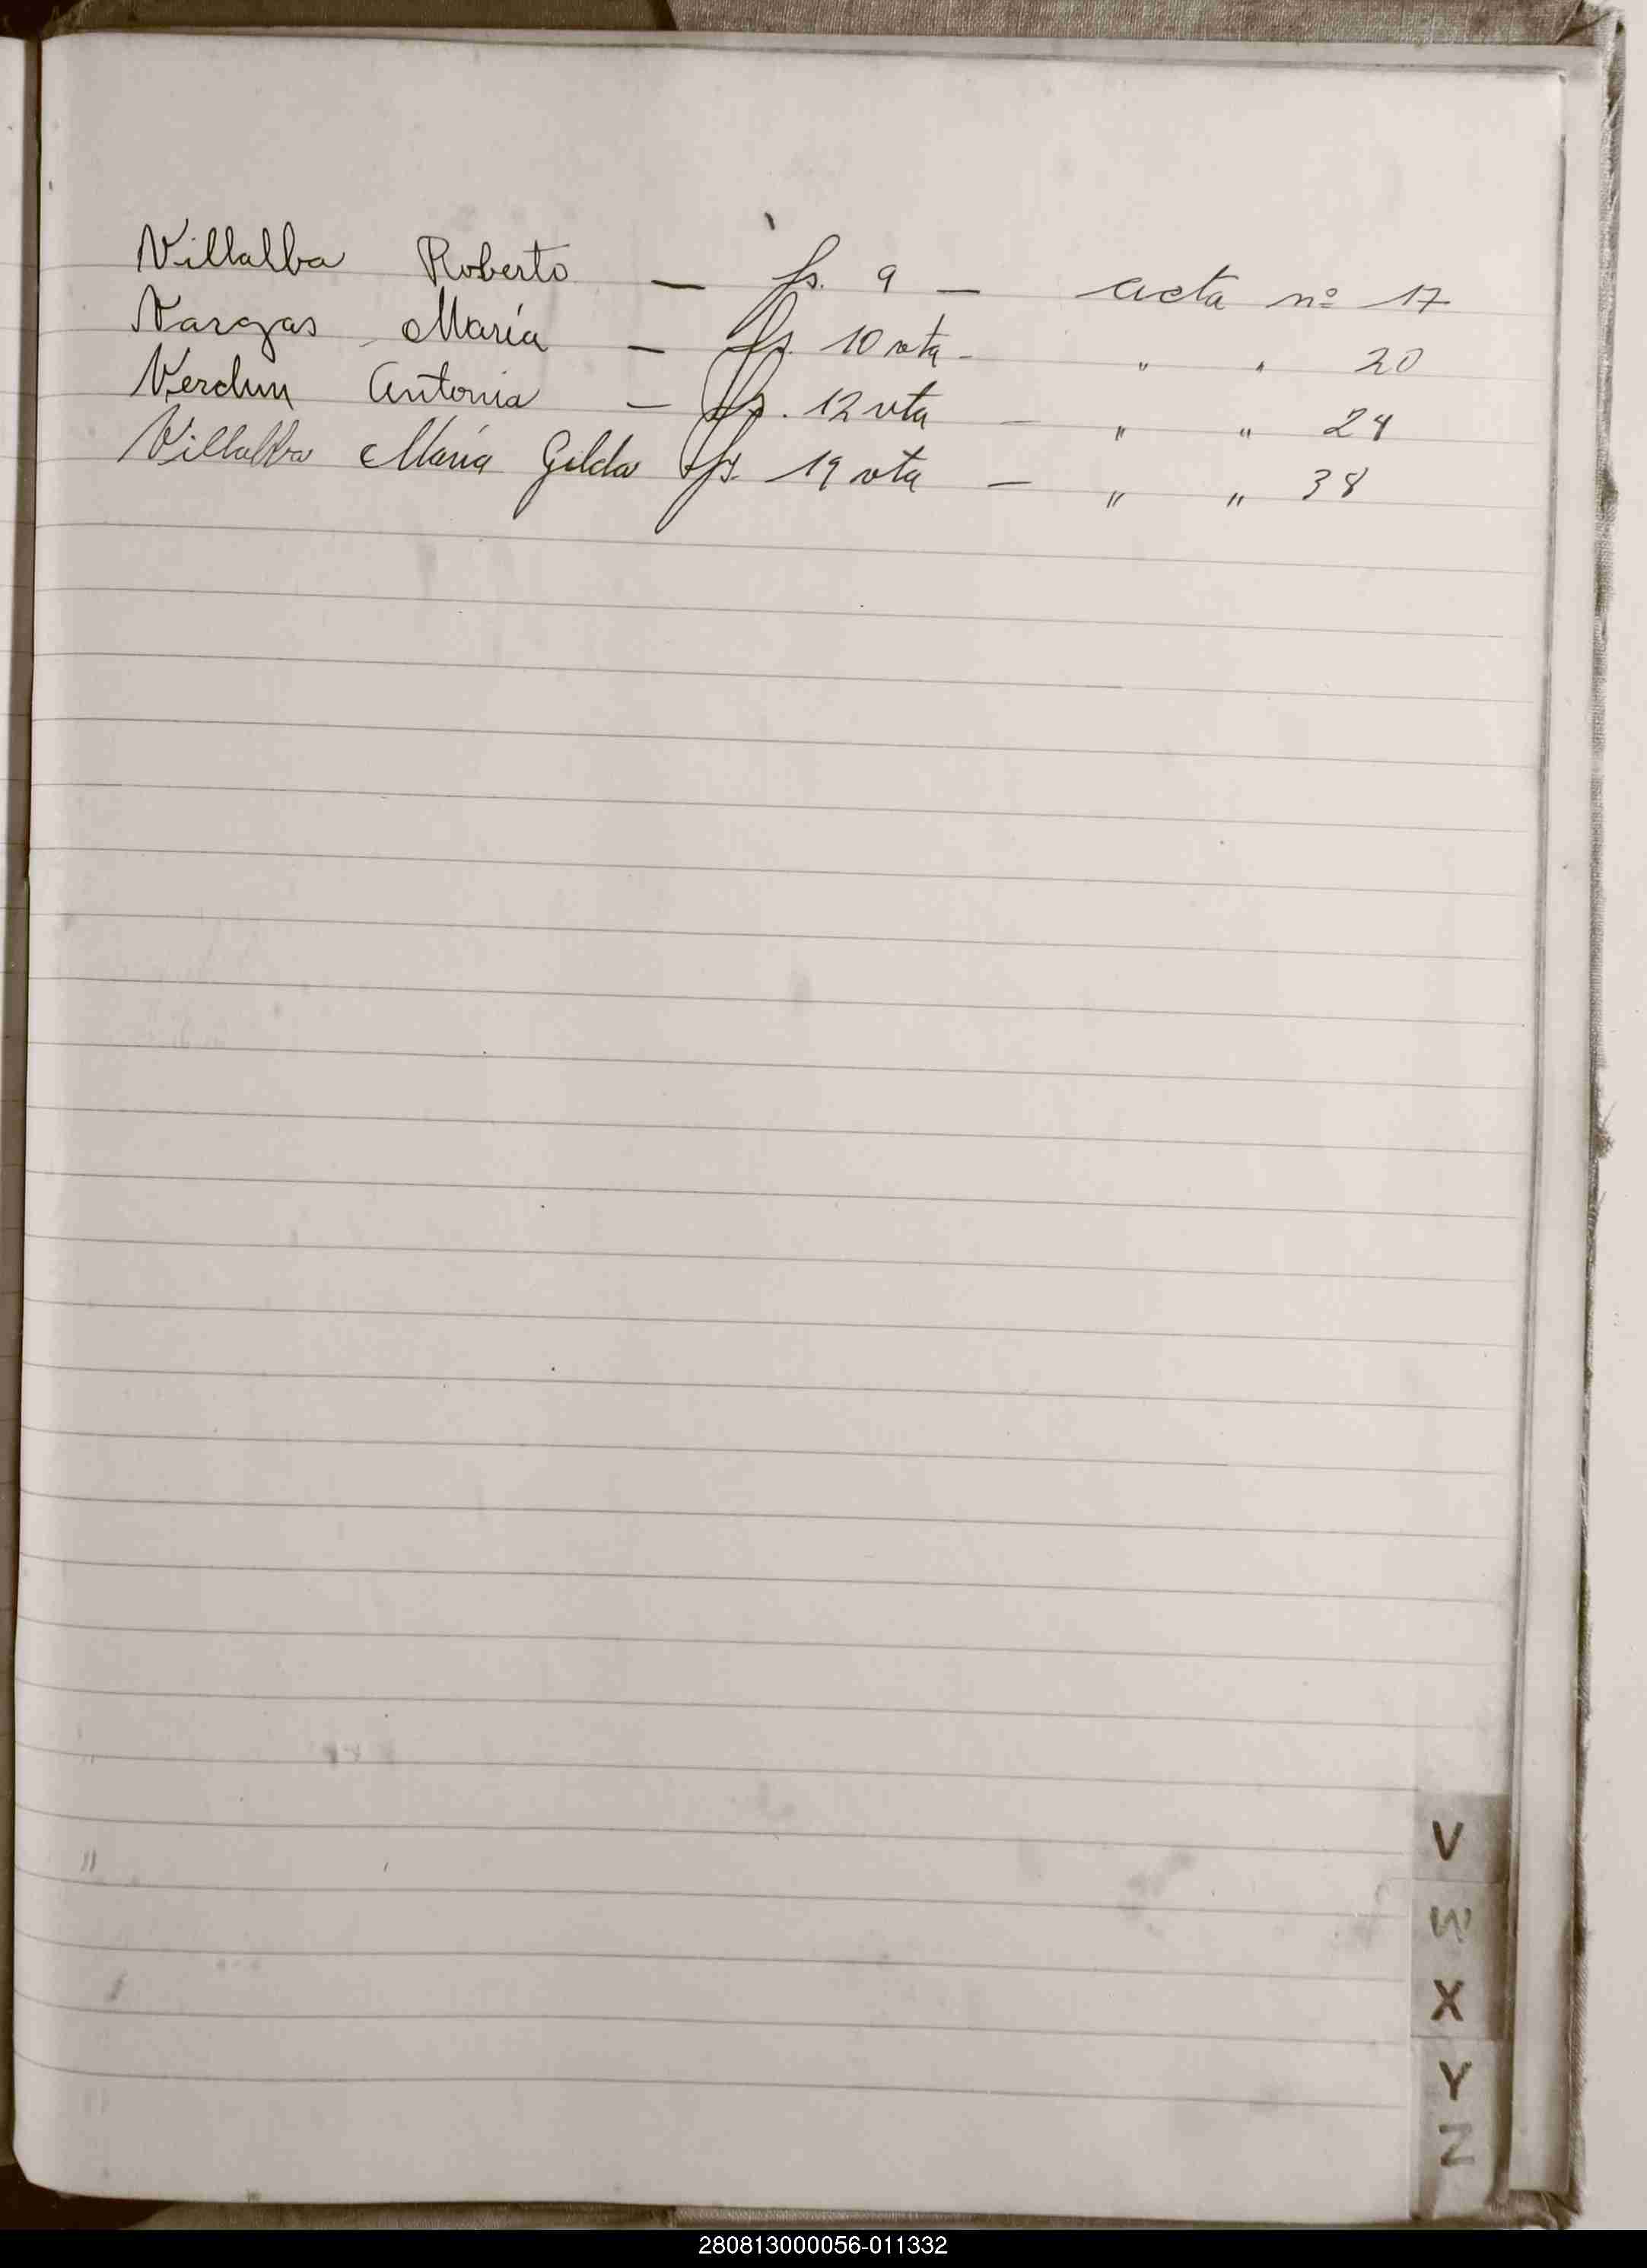 Villalba Roberto — fs. 9 — acta nº 17
Vargas María — fs. 10 vta - " " 20
Verdun Antonia — fs. 12 vta — " " 24
Villalba María Gilda fs. 19 vta — " " 38
V
W
X
Y
Z
280813000056-011332